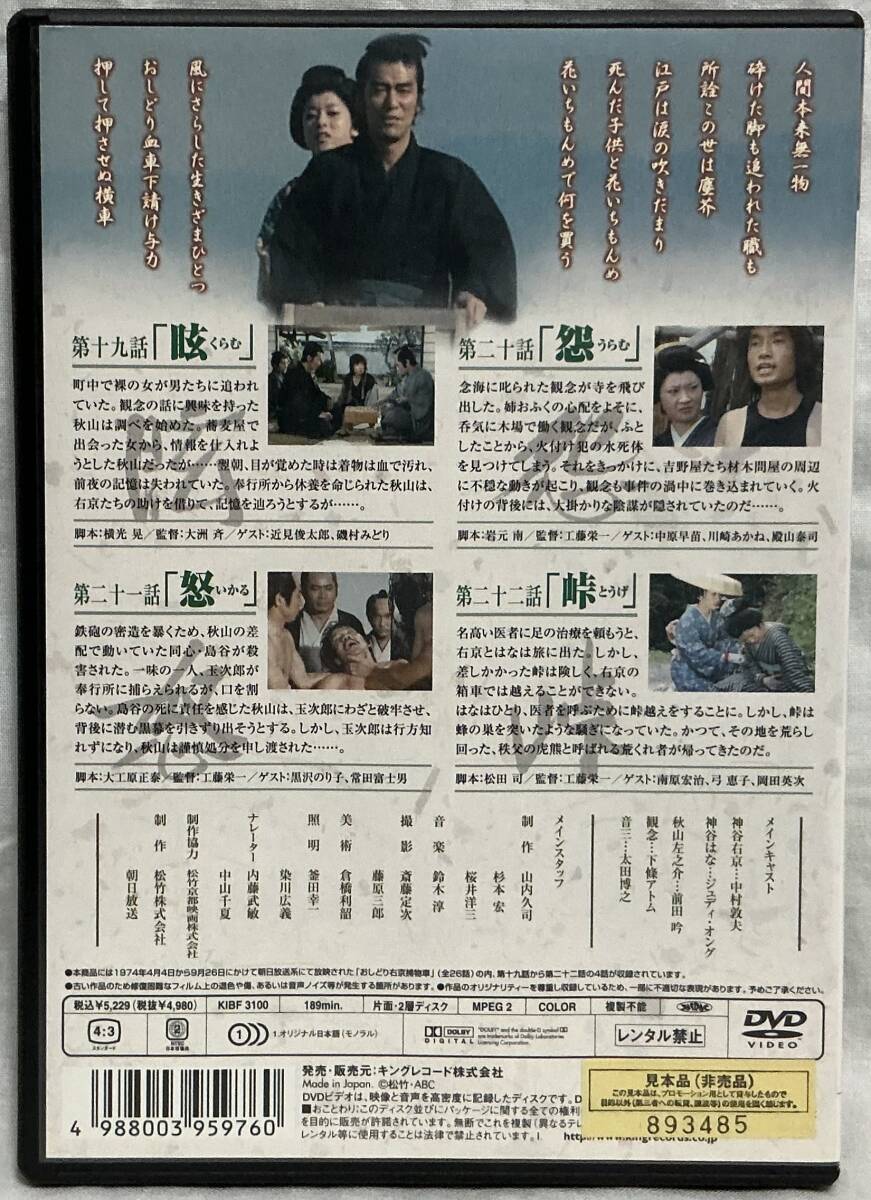 人間本来無一物
砕けた脚も追われた職も
所詮この世は塵芥
江戸は涙の吹きだまり
死んだ子供と花いちもんめ
花いちもんめで何を買う
風にさらした生きざまひとつ
おしどり血車下請け与力
押して押させぬ横車
第十九話「眩くらむ」
町中で裸の女が男たちに追われ
ていた。観念の話に興味を持った
秋山は調べを始めた。蕎麦屋で
出会った女から、情報を仕入れよ
うとした秋山だったが……翌朝、目が覚めた時は着物は血で汚れ、
前夜の記憶は失われていた。奉行所から休養を命じられた秋山は、
右京たちの助けを借りて、記憶を辿ろうとするが……。
脚本:横光 晃/監督:大洲 斉/ゲスト:近見俊太郎、磯村みどり
第二十話「怨うらむ」
念海に叱られた観念が寺を飛び
出した。姉おふくの心配をよそに、
呑気に木場で働く観念だが、ふと
したことから、火付け犯の水死体
を見つけてしまう。それをきっかけに、吉野屋たち材木問屋の周辺
に不穏な動きが起こり、観念も事件の渦中に巻き込まれていく。火
付けの背後には、大掛かりな陰謀が隠されていたのだ……。
脚本:岩元 南/監督:工藤栄一/ゲスト:中原早苗、川崎あかね、殿山泰司
第二十一話「怒いかる」
鉄砲の密造を暴くため、秋山の差
配で動いていた同心・島谷が殺
害された。一味の一人、玉次郎が
奉行所に捕らえられるが、口を割
らない。島谷の死に責任を感じた秋山は、玉次郎にわざと破牢させ、
背後に潜む黒幕を引きずり出そうとする。しかし、玉次郎は行方知
れずになり、秋山は謹慎処分を申し渡された……。
脚本:大工原正泰/監督:工藤栄一/ゲスト:黒沢のり子、常田富士男
第二十二話「峠とうげ」
名高い医者に足の治療を頼もうと、
右京とはなは旅に出た。しかし、
差しかかった峠は険しく、右京の
箱車では越えることができない。
はなはひとり、医者を呼ぶために峠越えをすることに。しかし、峠は
蜂の巣を突いたような騒ぎになっていた。かつて、その地を荒らし
回った、秩父の虎熊と呼ばれる荒くれ者が帰ってきたのだ。
脚本:松田 司/監督:工藤栄一/ゲスト:南原宏治、弓 恵子、岡田英次
メインキャスト
神谷右京…中村敦夫
神谷はな…ジュディ・オング
秋山左之介…前田 吟
観念…下條アトム
音三…太田博之
メインスタッフ
制作 山内久司
杉本 宏
桜井洋三
音楽 鈴木 淳
撮影 斎藤定次
藤原三郎
美術 倉橋利韶
照明 釜田幸一
染川広義
ナレーター 内藤武敏
中山千夏
制作協力 松竹京都映画株式会社
制作 松竹株式会社
朝日放送
●本商品には1974年4月4日から9月26日にかけて朝日放送系にて放映された「おしどり右京捕物車」(全26話)の内、第十九話から第二十二話の4話が収録されています。
●古い作品のため修復困難なフィルム上の退色や傷、あるいは音声ノイズ等が発生する箇所があります。●作品のオリジナリティーを尊重し収録しているため、一部に不適切な表現があります。予めご了承ください。
税込¥5,229(税抜¥4,980) KIBF 3100 189min. 片面・2層ディスク MPEG 2 COLOR 複製不能
4:3 スタンダード 2 NTSC 日本市場向 1 1.オリジナル日本語(モノラル) DOLBY DIGITAL "DOLBY" and the double-D symbol are trademarks of Dolby Laboratories Licensing Corporation. レンタル禁止 DVD VIDEO
発売・販売元:キングレコード株式会社
Made in Japan. ©松竹・ABC
DVDビデオは、映像と音声を高密度に記録したディスクです。D
■おことわり:このディスク並びにパッケージに関する全ての権利
を目的に販売が許諾されています。無断でこれを複製(異なるテレ
レンタル等に使用することは法律で禁止されています。
http://www.kingrecords.co.jp
4 988003 959760
見本品(非売品)
この見本品は、プロモーション用として貸与したもので
目的以外(第三者への転貸、譲渡等)の使用を固く禁じます。
893485